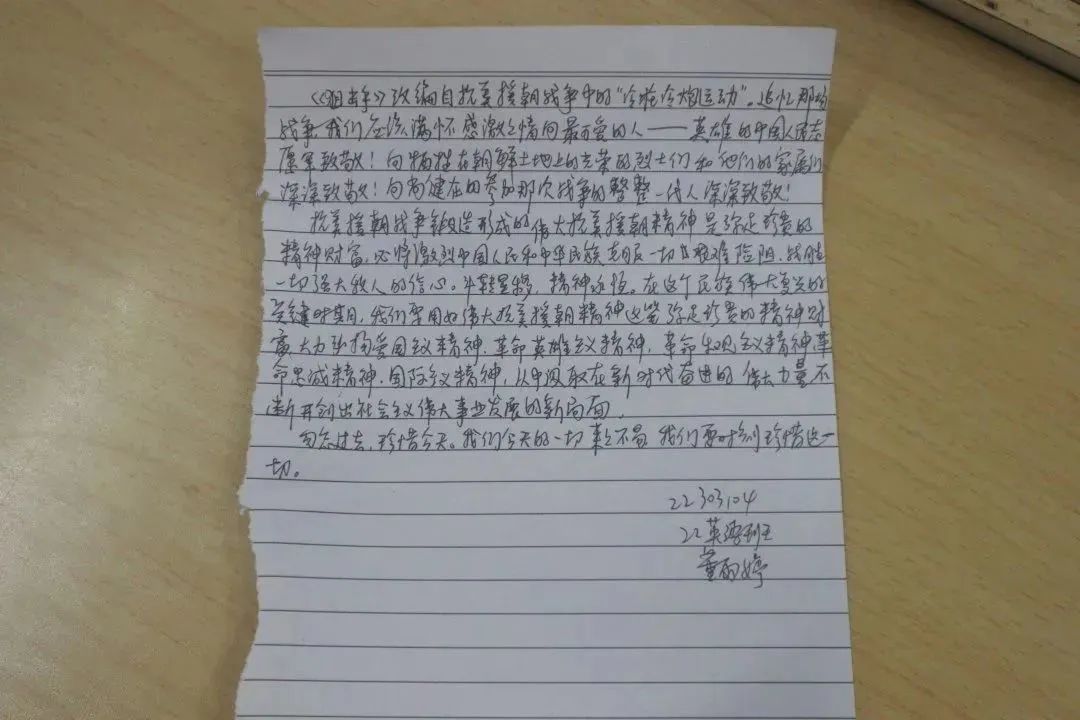 《狙击手》改编自抗美援朝战争中的“冷枪冷炮运动”。追忆那场
战争,我们应该满怀感激之情向最可爱的人——英雄的中国人民志
愿军致敬!向牺牲在朝鲜土地上的光荣的烈士们和他们的家属们
深深致敬!向尚健在的参加那次战争的整整一代人深深致敬!
抗美援朝战争锻造形成的伟大抗美援朝精神是弥足珍贵的
精神财富,必将激励中国人民和中华民族克服一切艰难险阻、战胜
一切强大敌人的信心。斗转星移,精神永恒。在这个民族伟大复兴的
关键时期,我们要用好伟大抗美援朝精神这笔弥足珍贵的精神财
富,大力弘扬爱国主义精神、革命英雄主义精神、革命乐观主义精神、革
命忠诚精神、国际主义精神,从中汲取在新时代奋进的伟大力量,不
断开创出社会主义伟大事业发展的新局面。
勿忘过去,珍惜今天。我们今天的一切来之不易,我们要时刻珍惜这一
切。
22303104
22英语班
董雨婷